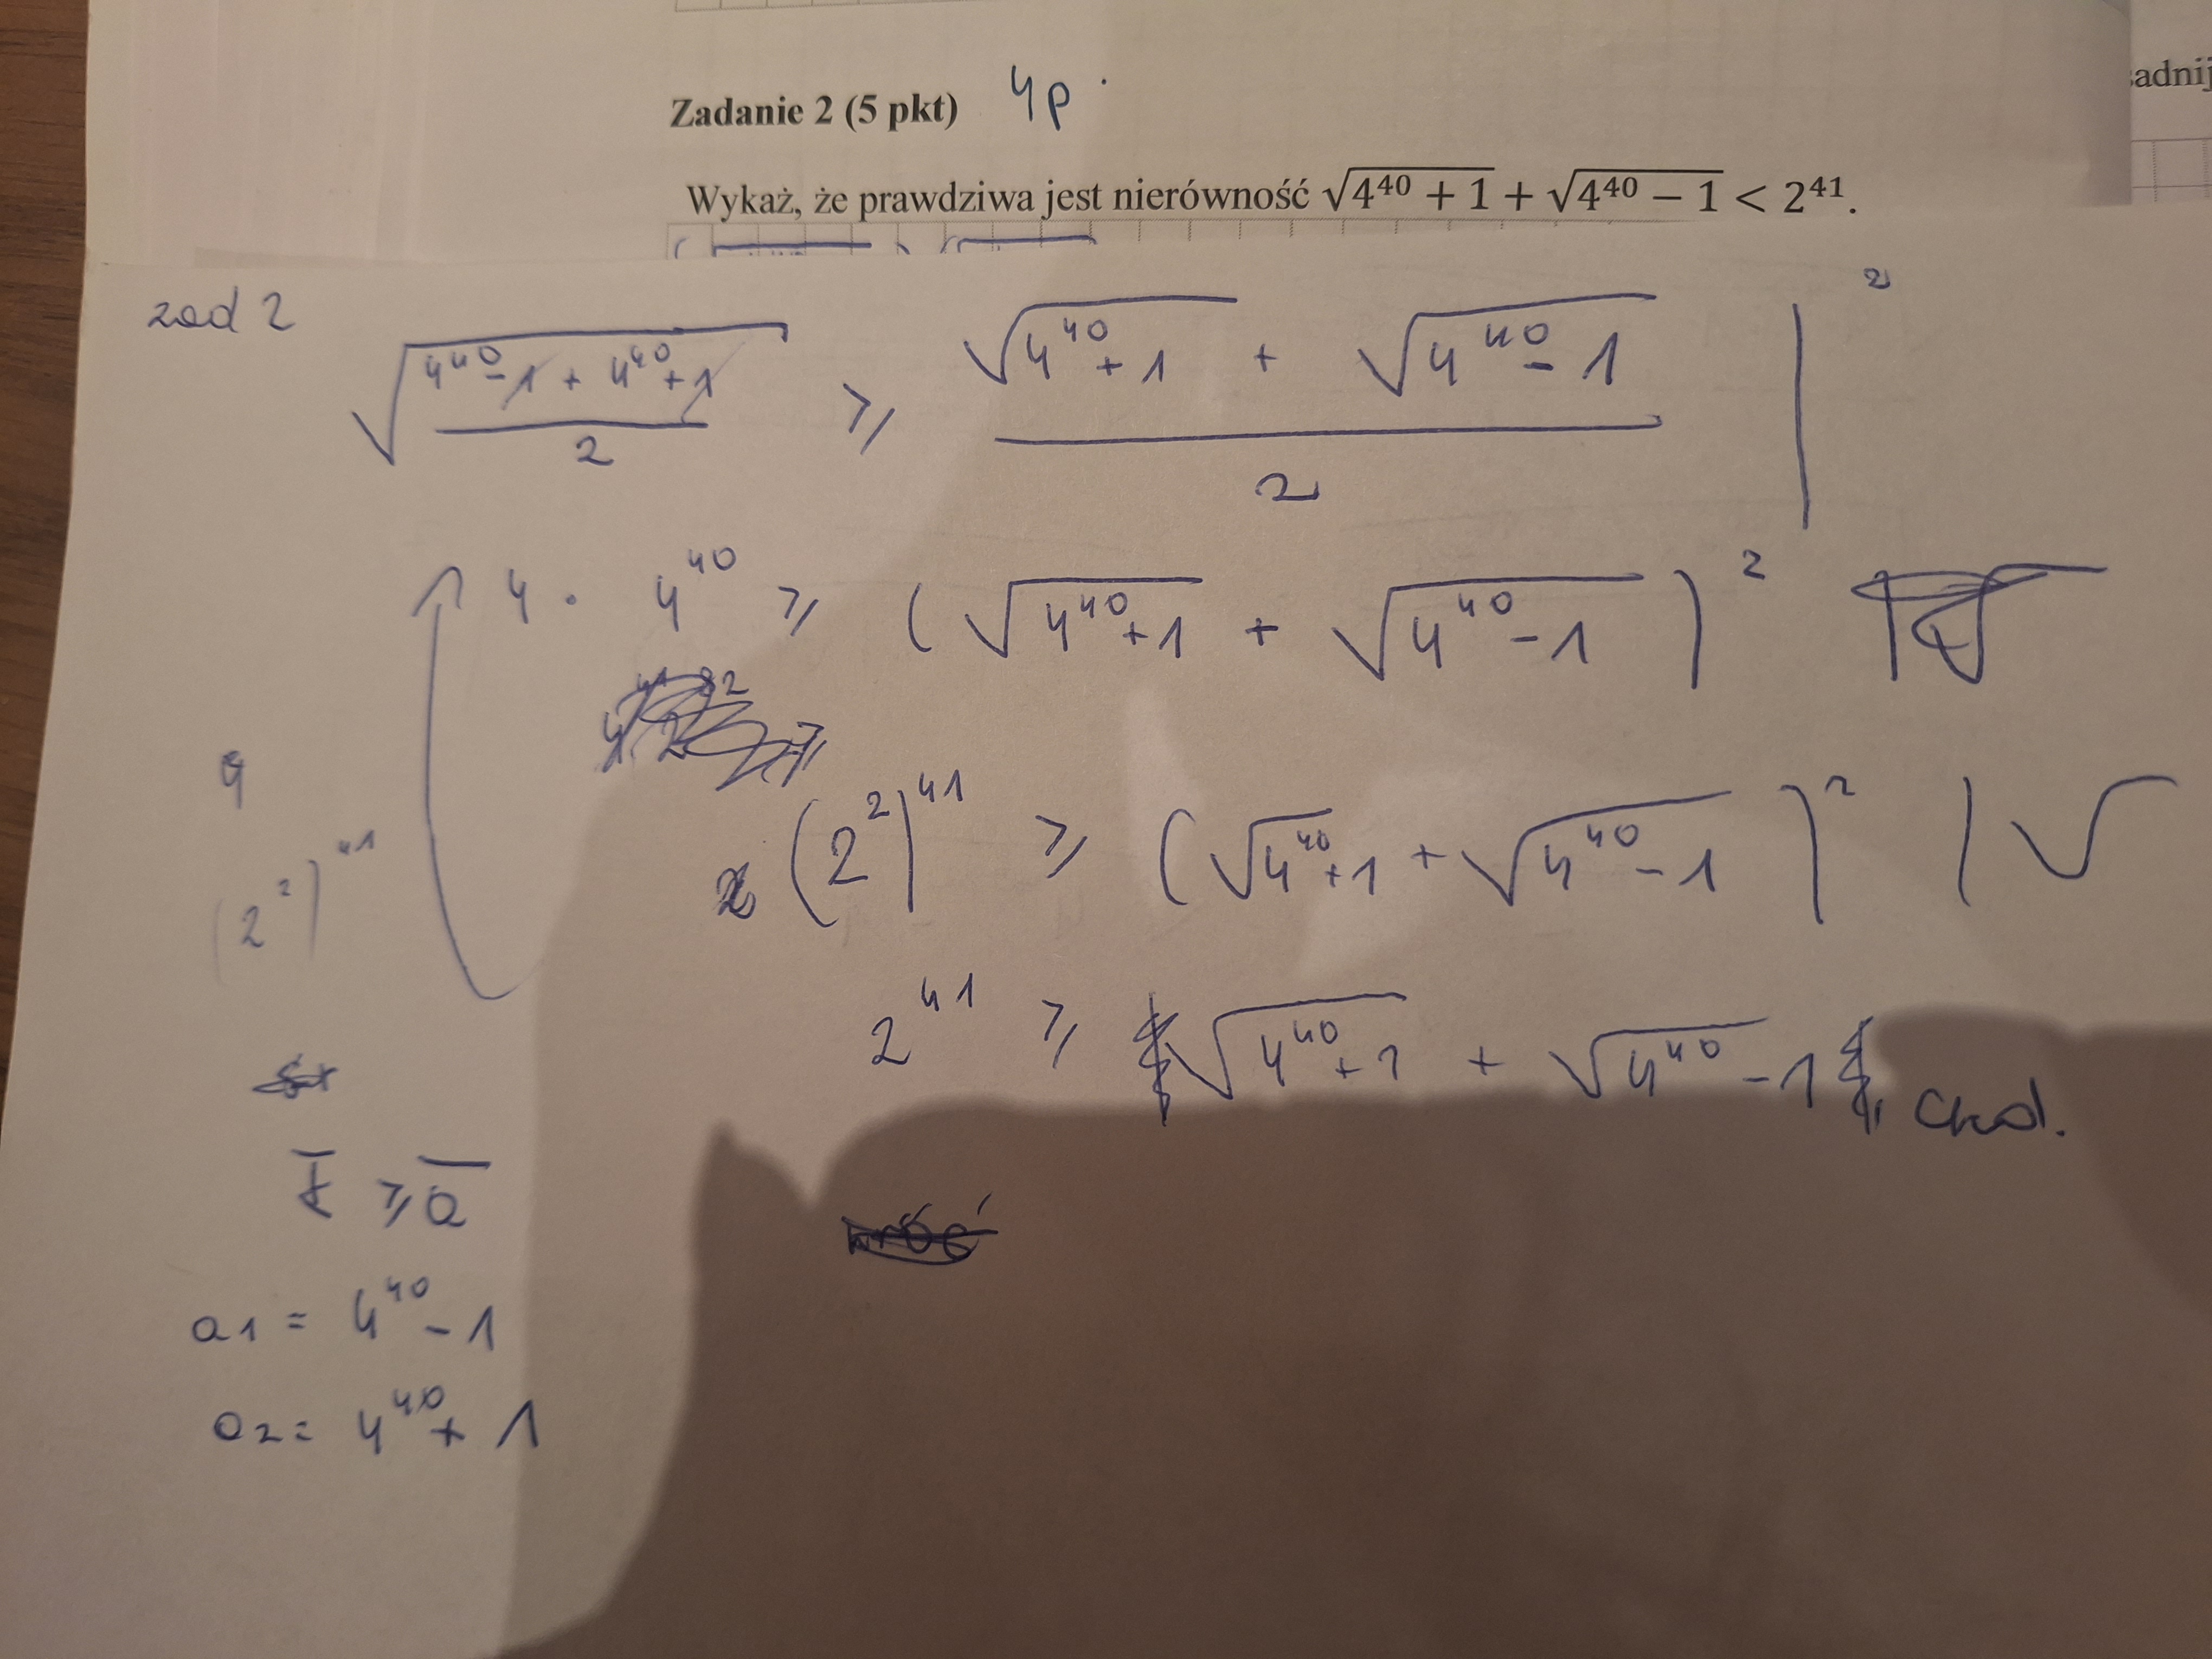 sadnij
Zadanie 2 (5 pkt) 4p.
Wykaż, że prawdziwa jest nierówność √(4⁴⁰ + 1) + √(4⁴⁰ − 1) < 2⁴¹.
zad 2
√((4⁴⁰ - 1 + 4⁴⁰ + 1)/2) ⩾ (√(4⁴⁰ + 1) + √(4⁴⁰ - 1))/2 |²
4 · 4⁴⁰ ⩾ (√(4⁴⁰ + 1) + √(4⁴⁰ - 1))²
(2²)⁴¹ ⩾ (√(4⁴⁰ + 1) + √(4⁴⁰ - 1))² | √
(2²)⁴¹
2⁴¹ ⩾ √(4⁴⁰ + 1) + √(4⁴⁰ - 1) cnd.
⩾ a̅
a₁ = 4⁴⁰ - 1
a₂ = 4⁴⁰ + 1